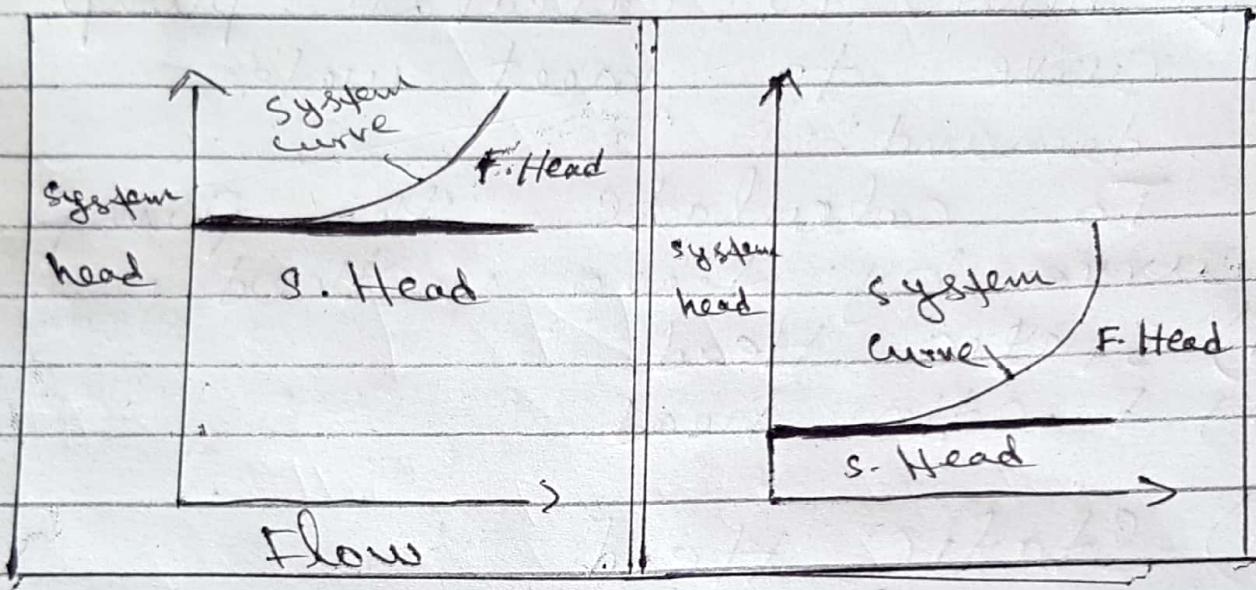 system
curve
F. Head
system
head
S. Head
Flow
system
head
system
curve
F. Head
S. Head